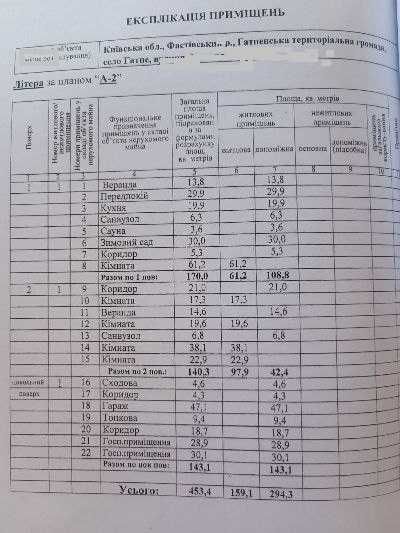 ЕКСПЛІКАЦІЯ ПРИМІЩЕНЬ
об'єкта
Київська обл., Фастівськи.. р., Гатненська територіальна громада,
село Гатне,
Літера за планом "А-2"
Поверх
Номери приміщень у складі об'єкта нерухомого майна
Функціональне призначення приміщень у складі об'єкта нерухомого майна
Загальна площа приміщень, підрахована за формулами розрахунку площ, кв. метрів
Площа, кв. метрів
житлових приміщень
нежитлових приміщень
житлова
допоміжна
основна
допоміжна (підсобна)
4 5 6 7 8 9 10
1 1 1 Веранда 13,8 13,8
2 Передпокій 29,9 29,9
3 Кухня 19,9 19,9
4 Санвузол 6,3 6,3
5 Сауна 3,6 3,6
6 Зимовий сад 30,0 30,0
7 Коридор 5,3 5,3
8 Кімната 61,2 61,2
Разом по 1 пов: 170,0 61,2 108,8
2 1 9 Коридор 21,0 21,0
10 Кімната 17,3 17,3
11 Веранда 14,6 14,6
12 Кімната 19,6 19,6
13 Санвузол 6,8 6,8
14 Кімната 38,1 38,1
15 Кімната 22,9 22,9
Разом по 2 пов.: 140,3 97,9 42,4
цокольний 1 16 Сходова 4,6 4,6
поверх 17 Коридор 4,3 4,3
18 Гараж 47,1 47,1
19 Топкова 9,4 9,4
20 Коридор 18,7 18,7
21 Госп.приміщення 28,9 28,9
22 Госп.приміщення 30,1 30,1
Разом по цок пов: 143,1 143,1
Усього: 453,4 159,1 294,3